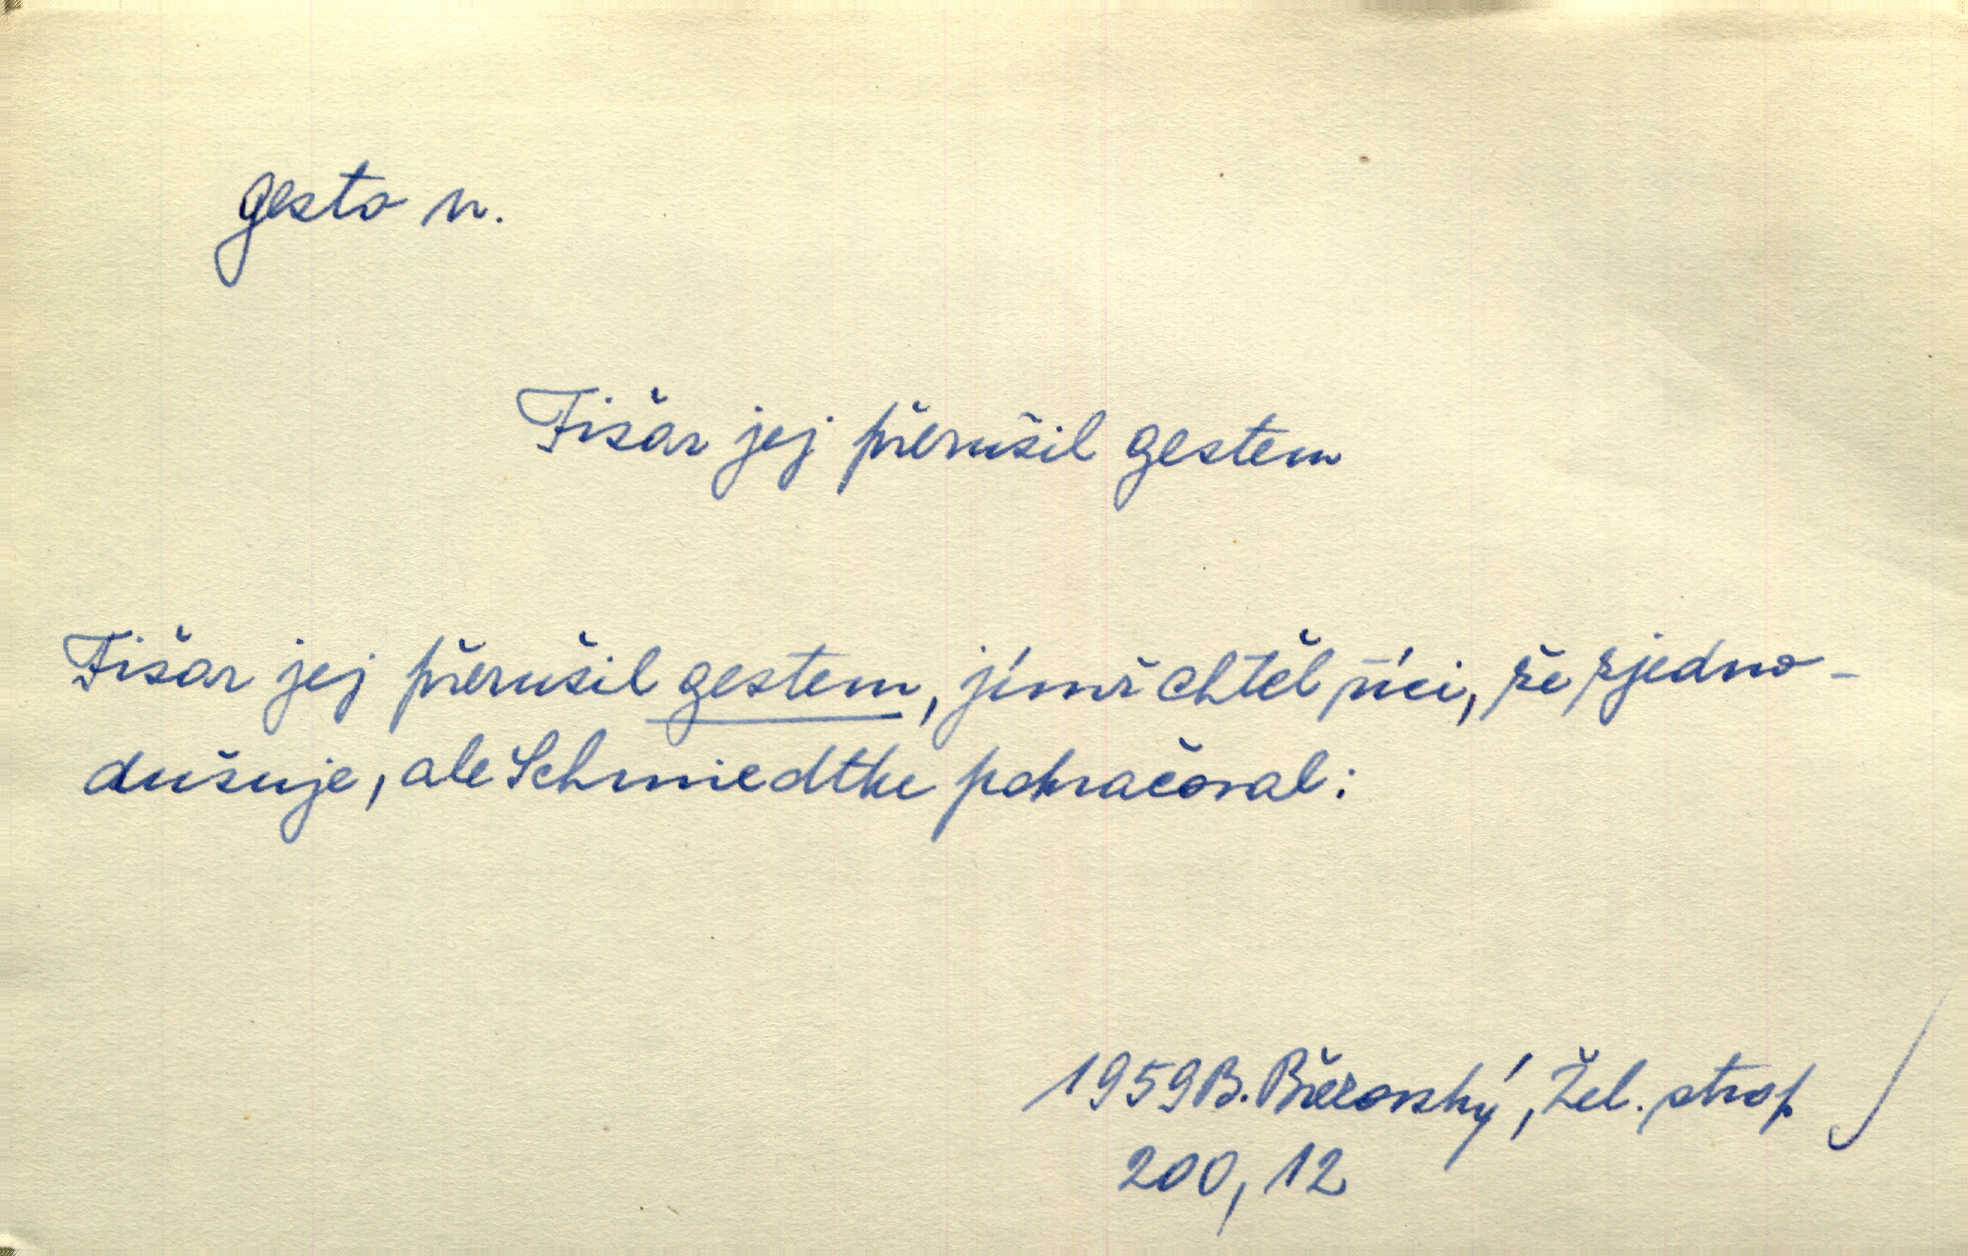 gesto n.
Fišar jej přerušil gestem
Fišar jej přerušil gestem, jímž chtěl říci, že zjedno-
dušuje, ale Schmiedtke pokračoval:
1959 B. Březovský, Žel. strop
200, 12